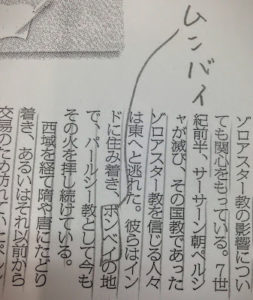 ムンバイ
ゾロアスター教の影響につい
ても関心をもっている。7世
紀前半、サーサーン朝ペルシ
ャが滅び、その国教であった
ゾロアスター教を信じる人々
は東へと逃れた。彼らはイン
ドに住み着き、ボンベイの地
で、パールシー教として今も
その火を拝し続けている。
西域を経て隋や唐にたどり
着き、あるいはそれ以前から
交易のため訪れてい